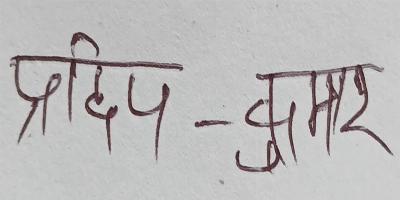 प्रदिप - कुमार